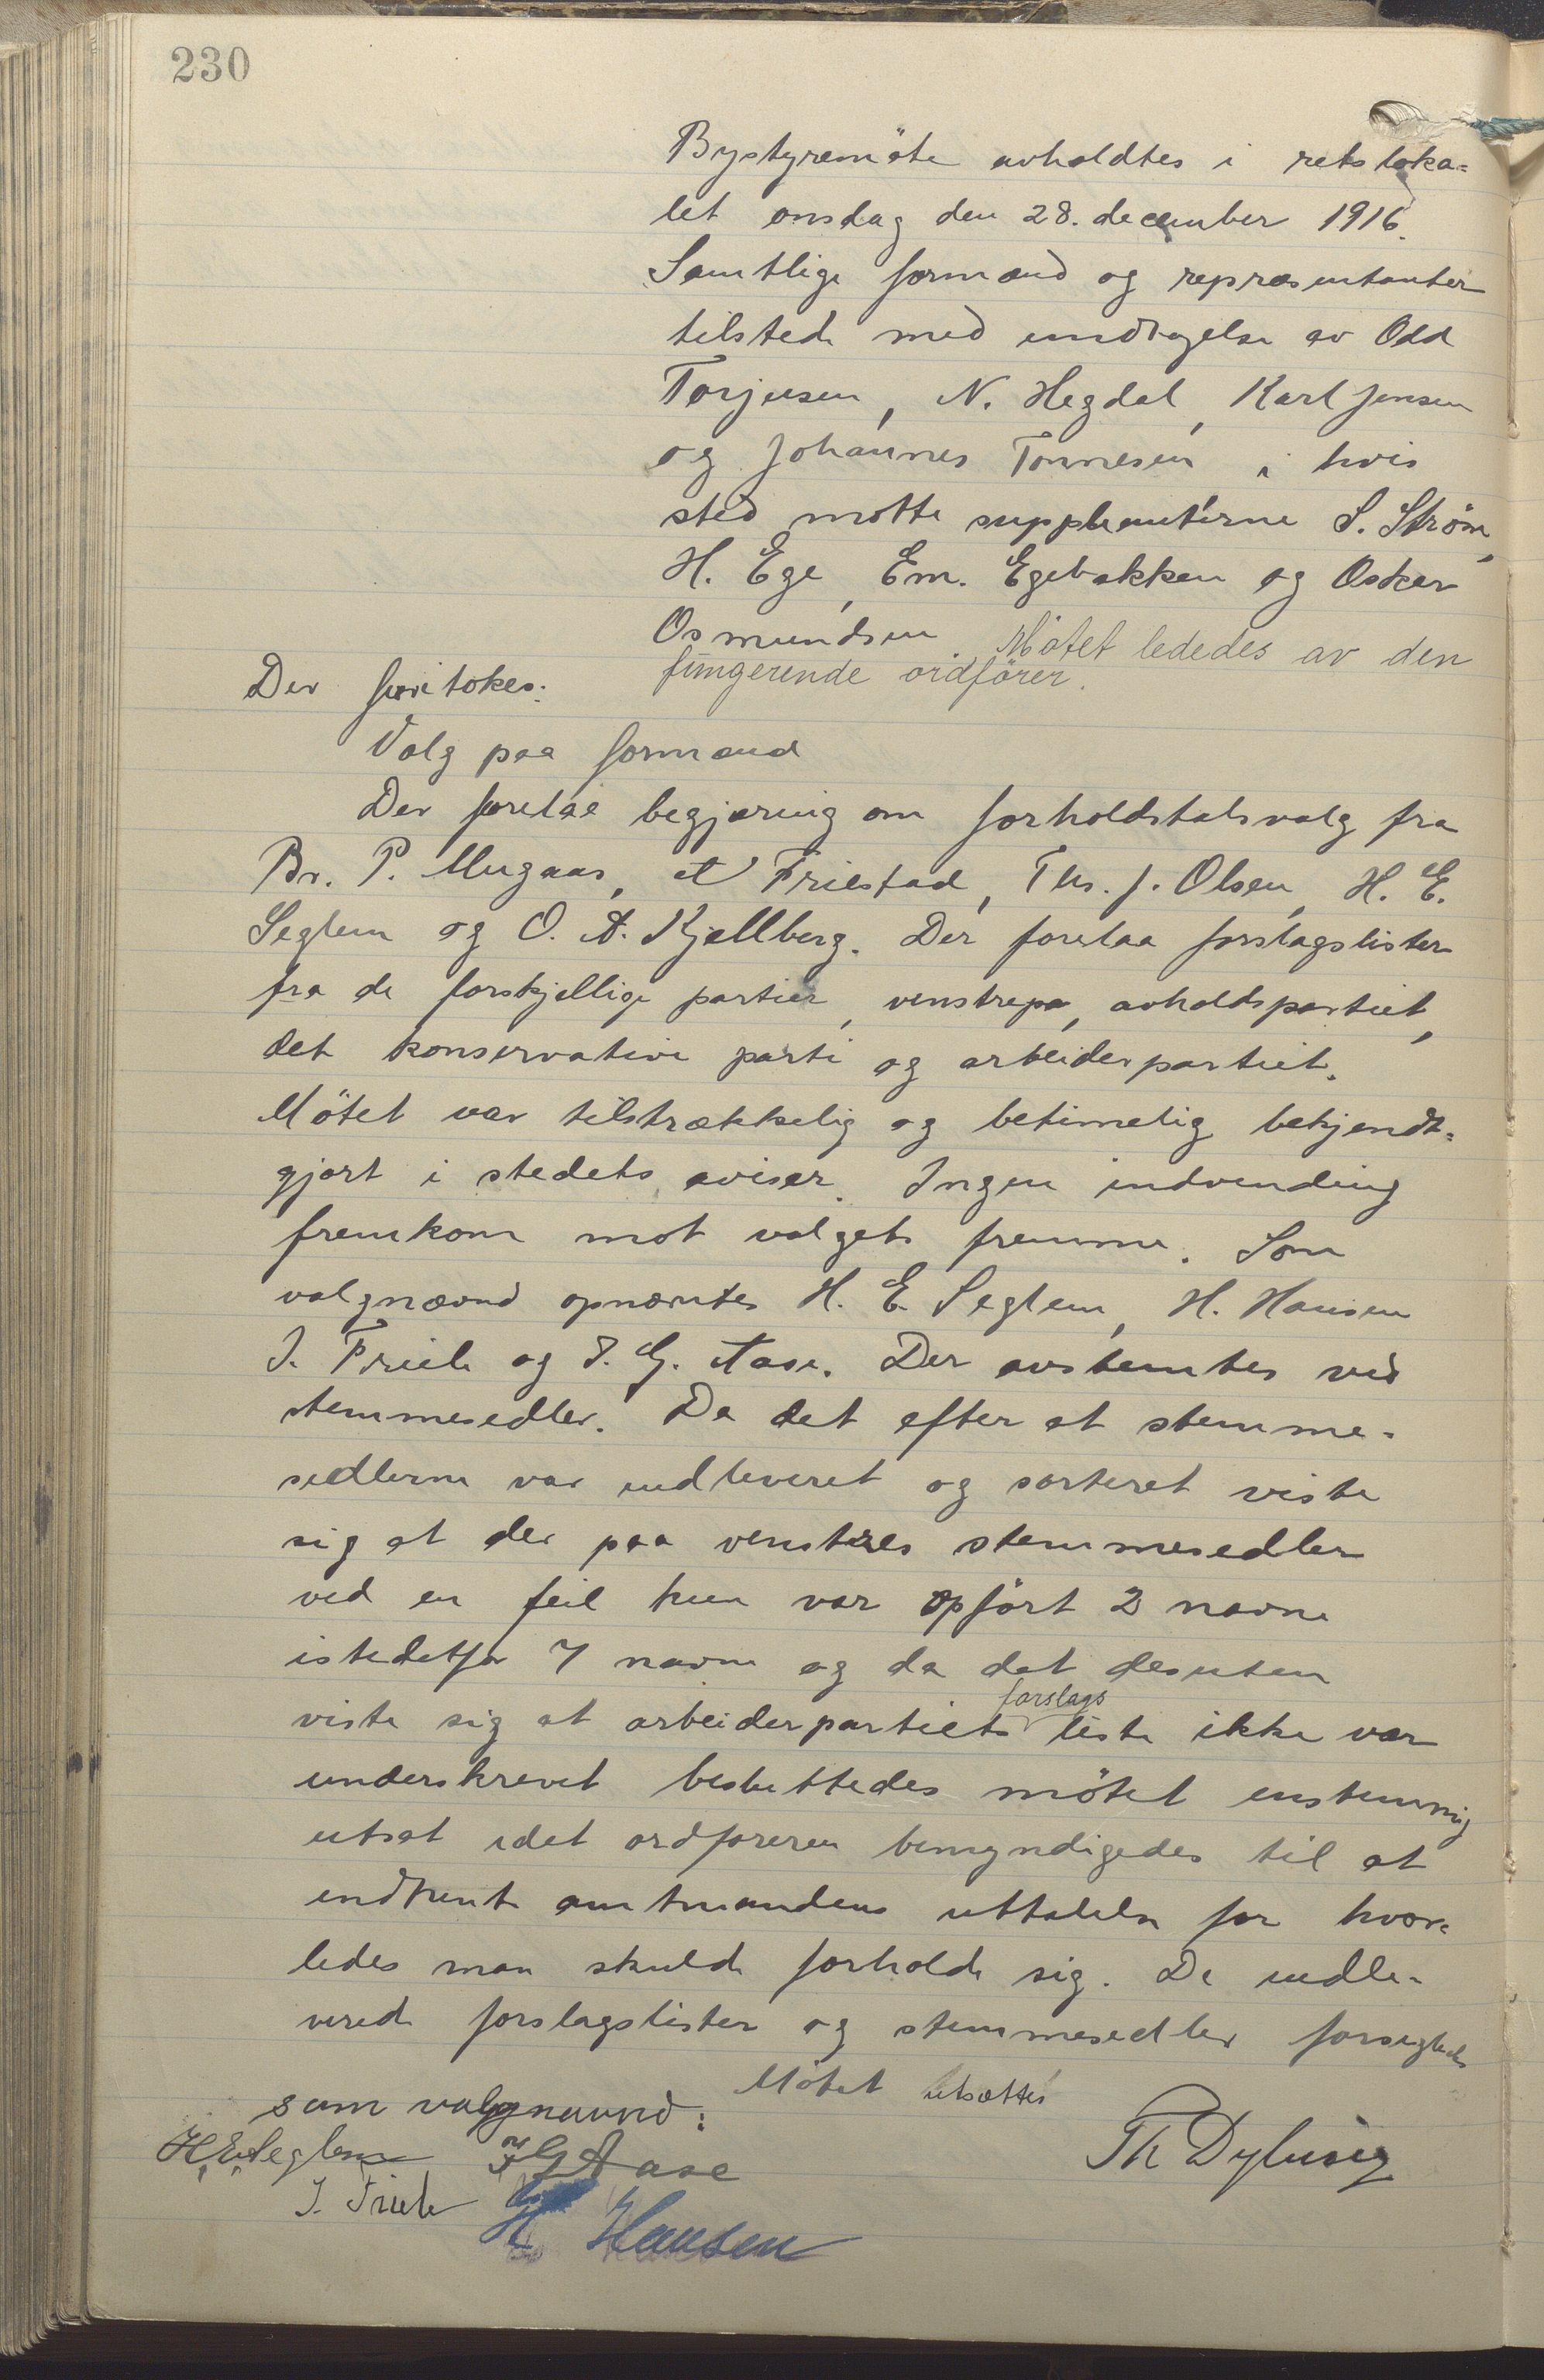 230
Bystyremöte avholdtes i retsloka=
let onsdag den 28. december 1916.
Samtlige formænd og repræsentanter
tilstede med undtagelse av Odd
Torjusen, N. Hegdal, Karl Jensen
og Johannes Tønnesen i hvis
sted møtte suppleanterne S. Ström,
H. Ege, Em. Egebakken og Oskar
Osmundsen Mötet lededes av den
fungerende ordförer.
Der foretokes:
Valg paa formænd
Der forelaa begjæring om forholdstalsvalg fra
Br. P. Mugaas, A Friestad, Ths. J. Olsen, H. E.
Seglem og O. A. Kjellberg. Der forelaa forslagslister
fra de forskjellige partier, venstrepa, avholdspartiet,
det konservative parti og arbeiderpartiet.
Mötet var tilstrækkelig og betimelig bekjendt=
gjort i stedets aviser. Ingen indvending
fremkom mot valgets fremme. Som
valgnævnd opnævntes H. E. Seglem, H. Hansen
J. Friele og T. G. Aase. Der avstemtes ved
stemmesedler. Da det efter at stemme=
sedlerne var indleveret og sorteret viste
sig at der paa venstres stemmesedler
ved en feil kun var opfört 2 navne
istedetfor 7 navne og da det desuten
viste sig at arbeiderpartiets forslags liste ikke var
underskrevet besluttedes mötet enstemmig
utsat idet ordføreren bemyndigedes til at
indhente amtmandens uttalelse for hvor=
ledes man skulde forholde sig. De indle=
verede forslagslister og stemmesedler forsegledes
Mötet utsættes
som valgnævnd:
H. E. Seglem T G Aase Th Dybusig
J. Friele H Hansen